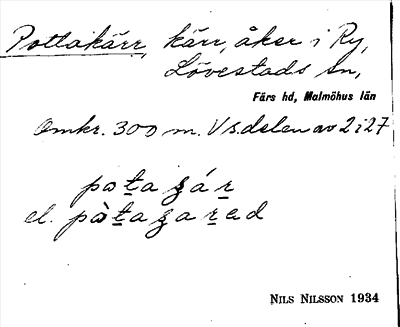 Pottakärr, kärr, åker i Ry,
Lövestads sn,
Färs hd, Malmöhus län
Omkr. 300 m. V s.delen av 2 i 27
el.
NILS NILSSON 1934